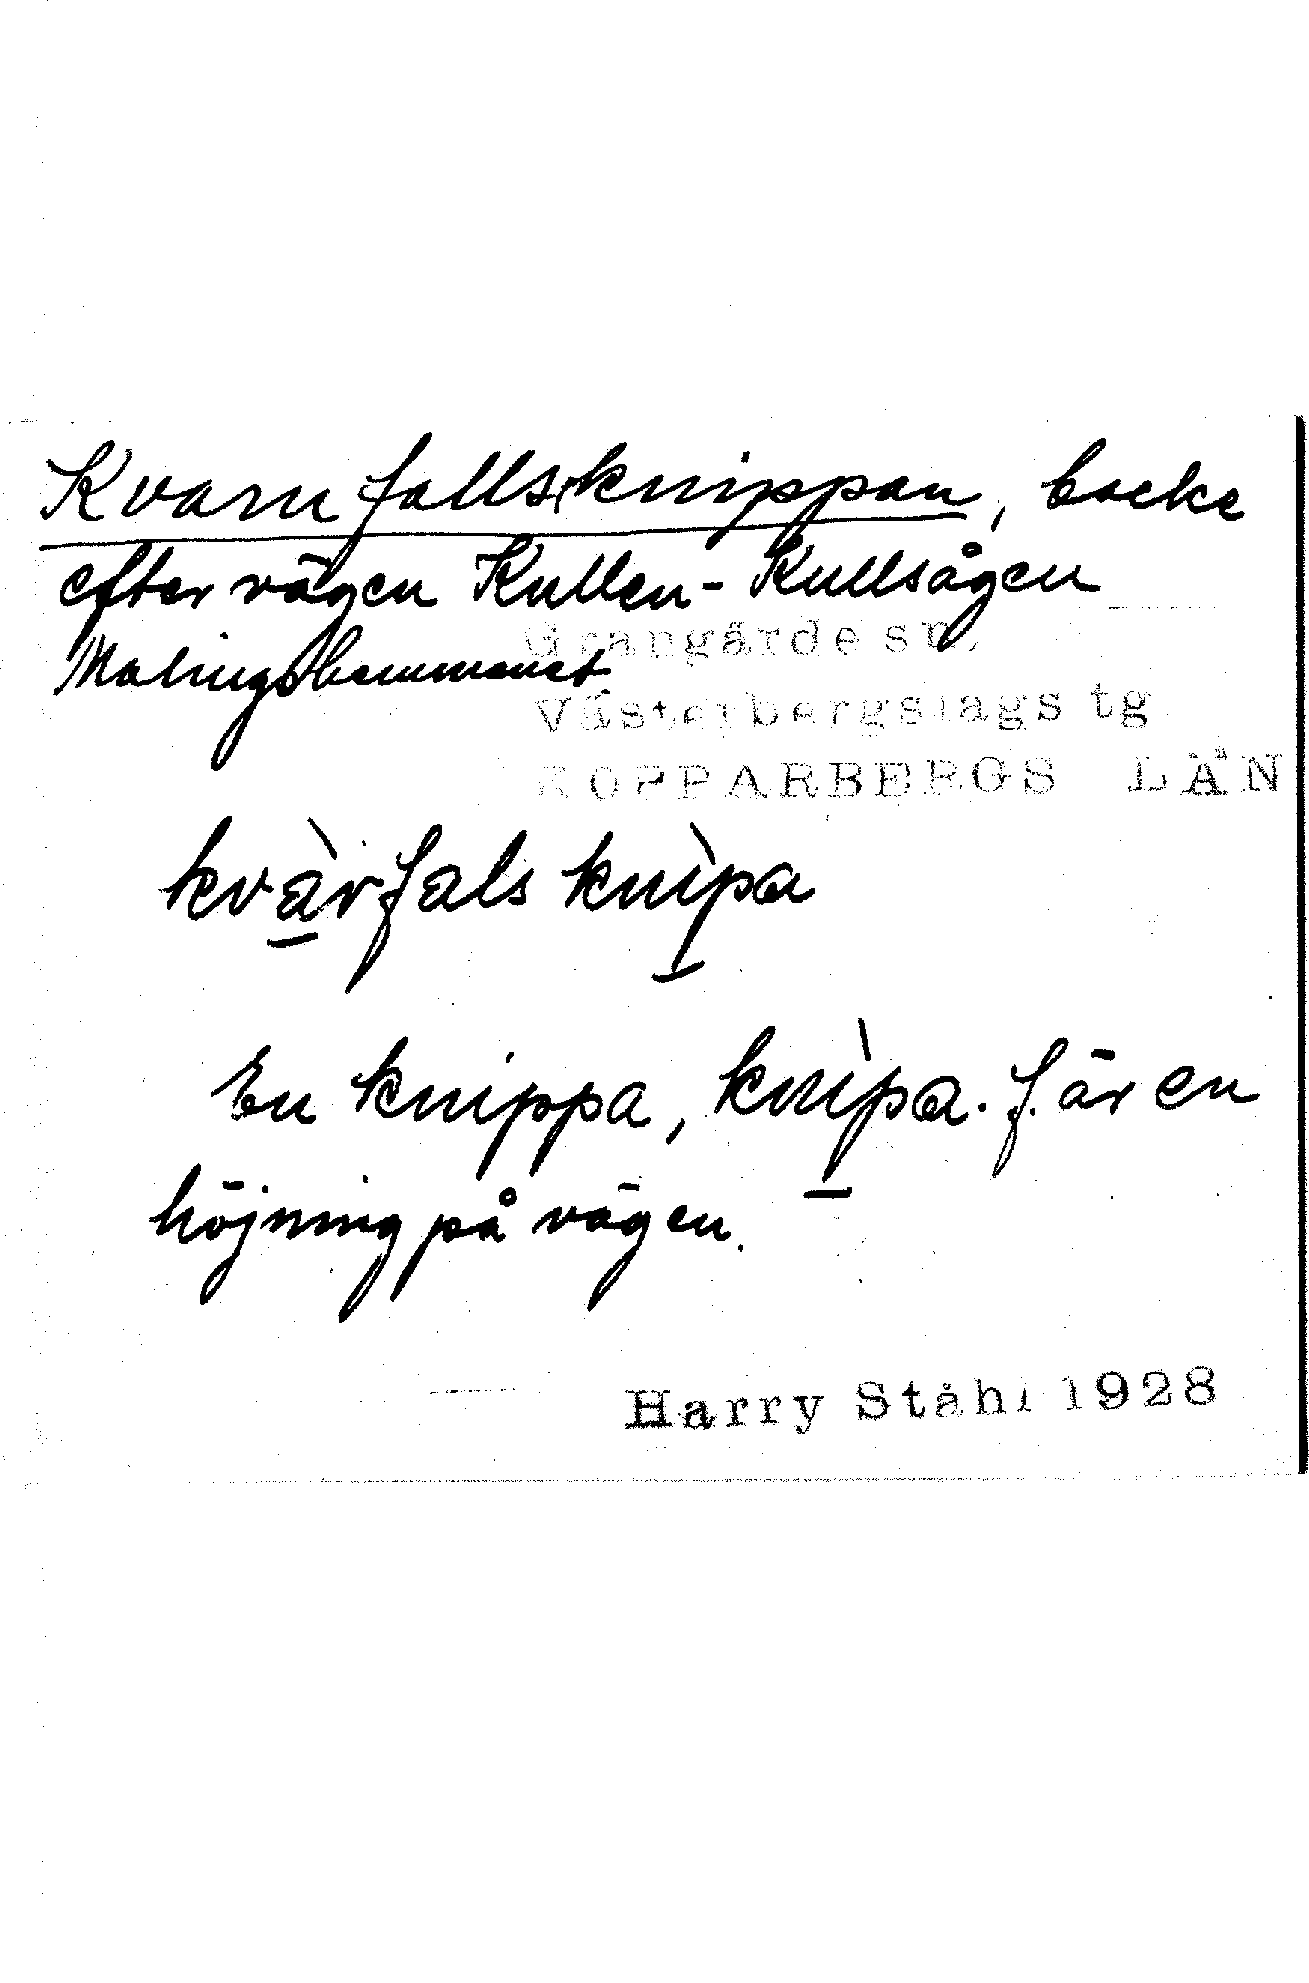 Kvarnfallsknippan, backe
efter vägen Kullen - Kullsågen
Malingsbommenet
Grangärde sn.
Västerbergslags tg
KOPPARBERGS LÄN
kvàrfals knìpa
En knippa, knìpa. f. är en
höjning på vägen.
Harry Ståhl 1928